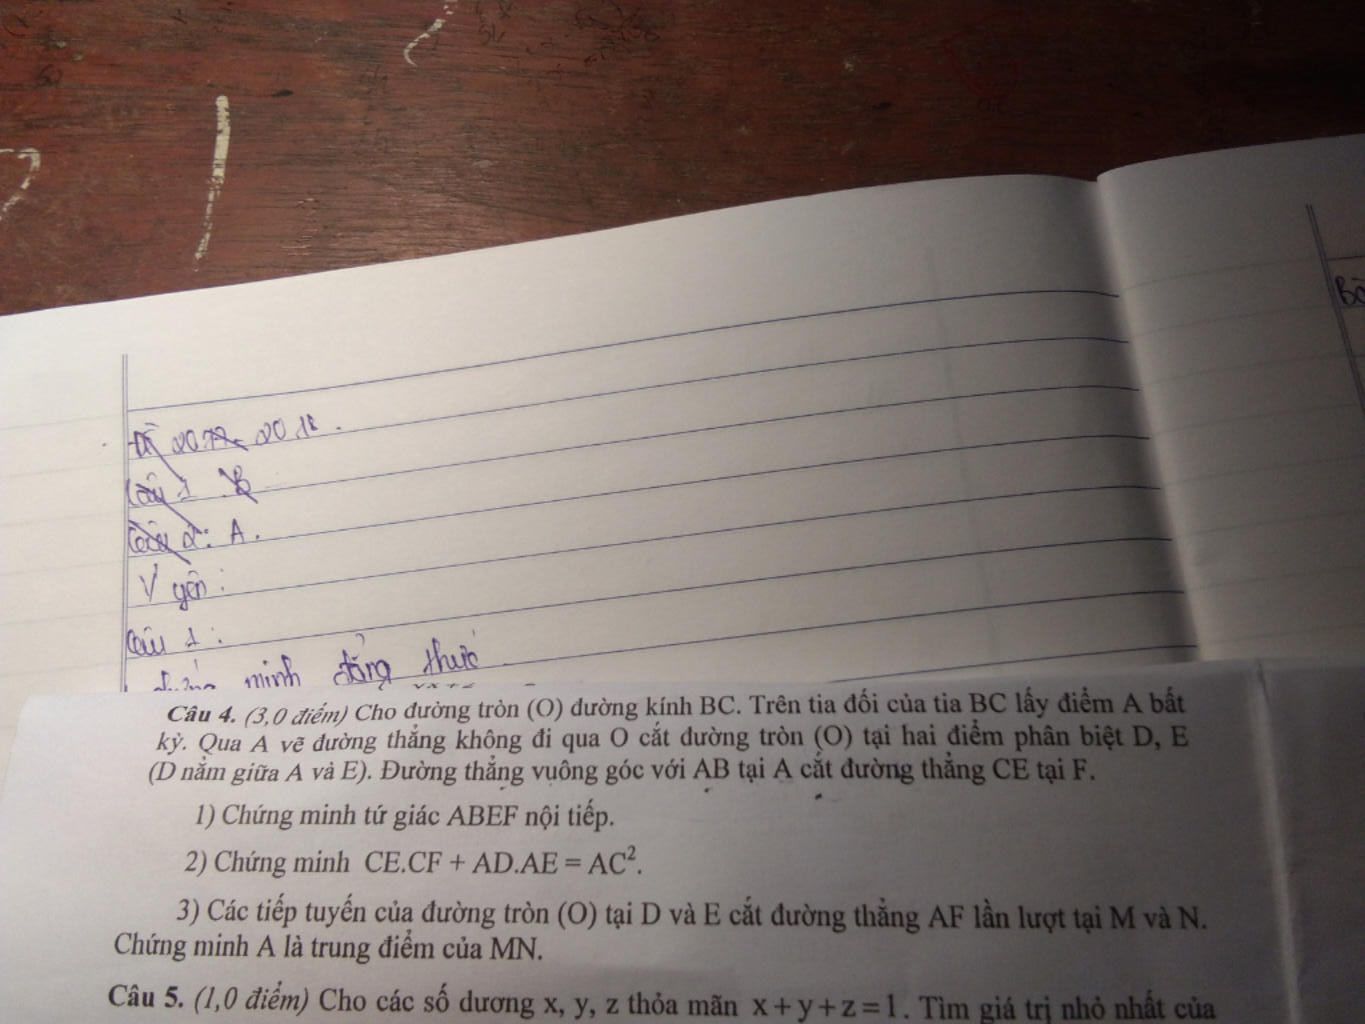 Đề 2017-2018.
Câu 1. B
Câu 2: A.
Ý yên:
Câu 1:
minh đẳng thức
Câu 4. (3,0 điểm) Cho đường tròn (O) đường kính BC. Trên tia đối của tia BC lấy điểm A bất
kỳ. Qua A vẽ đường thẳng không đi qua O cắt đường tròn (O) tại hai điểm phân biệt D, E
(D nằm giữa A và E). Đường thẳng vuông góc với AB tại A cắt đường thẳng CE tại F.
1) Chứng minh tứ giác ABEF nội tiếp.
2) Chứng minh CE.CF + AD.AE = AC².
3) Các tiếp tuyến của đường tròn (O) tại D và E cắt đường thẳng AF lần lượt tại M và N.
Chứng minh A là trung điểm của MN.
Câu 5. (1,0 điểm) Cho các số dương x, y, z thỏa mãn x + y + z = 1. Tìm giá trị nhỏ nhất của